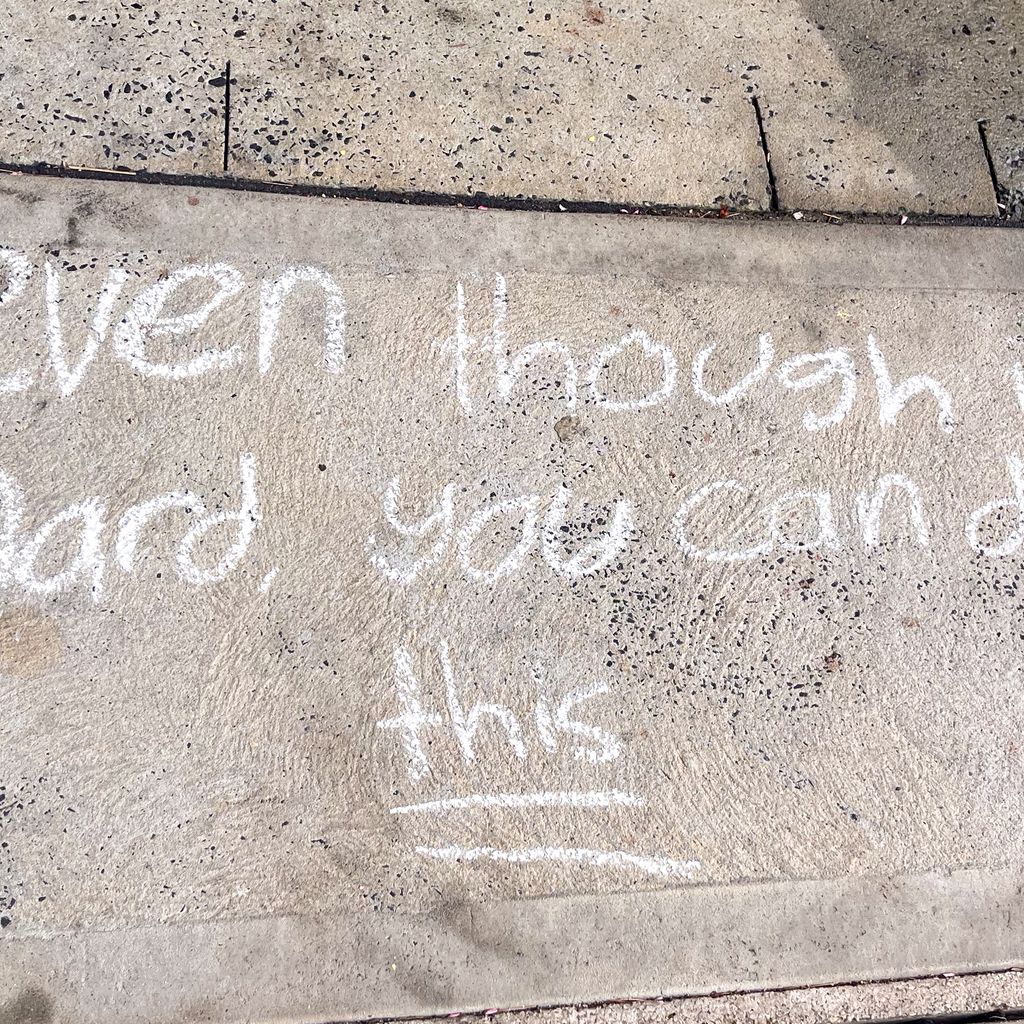 even though
hard, you can d
this